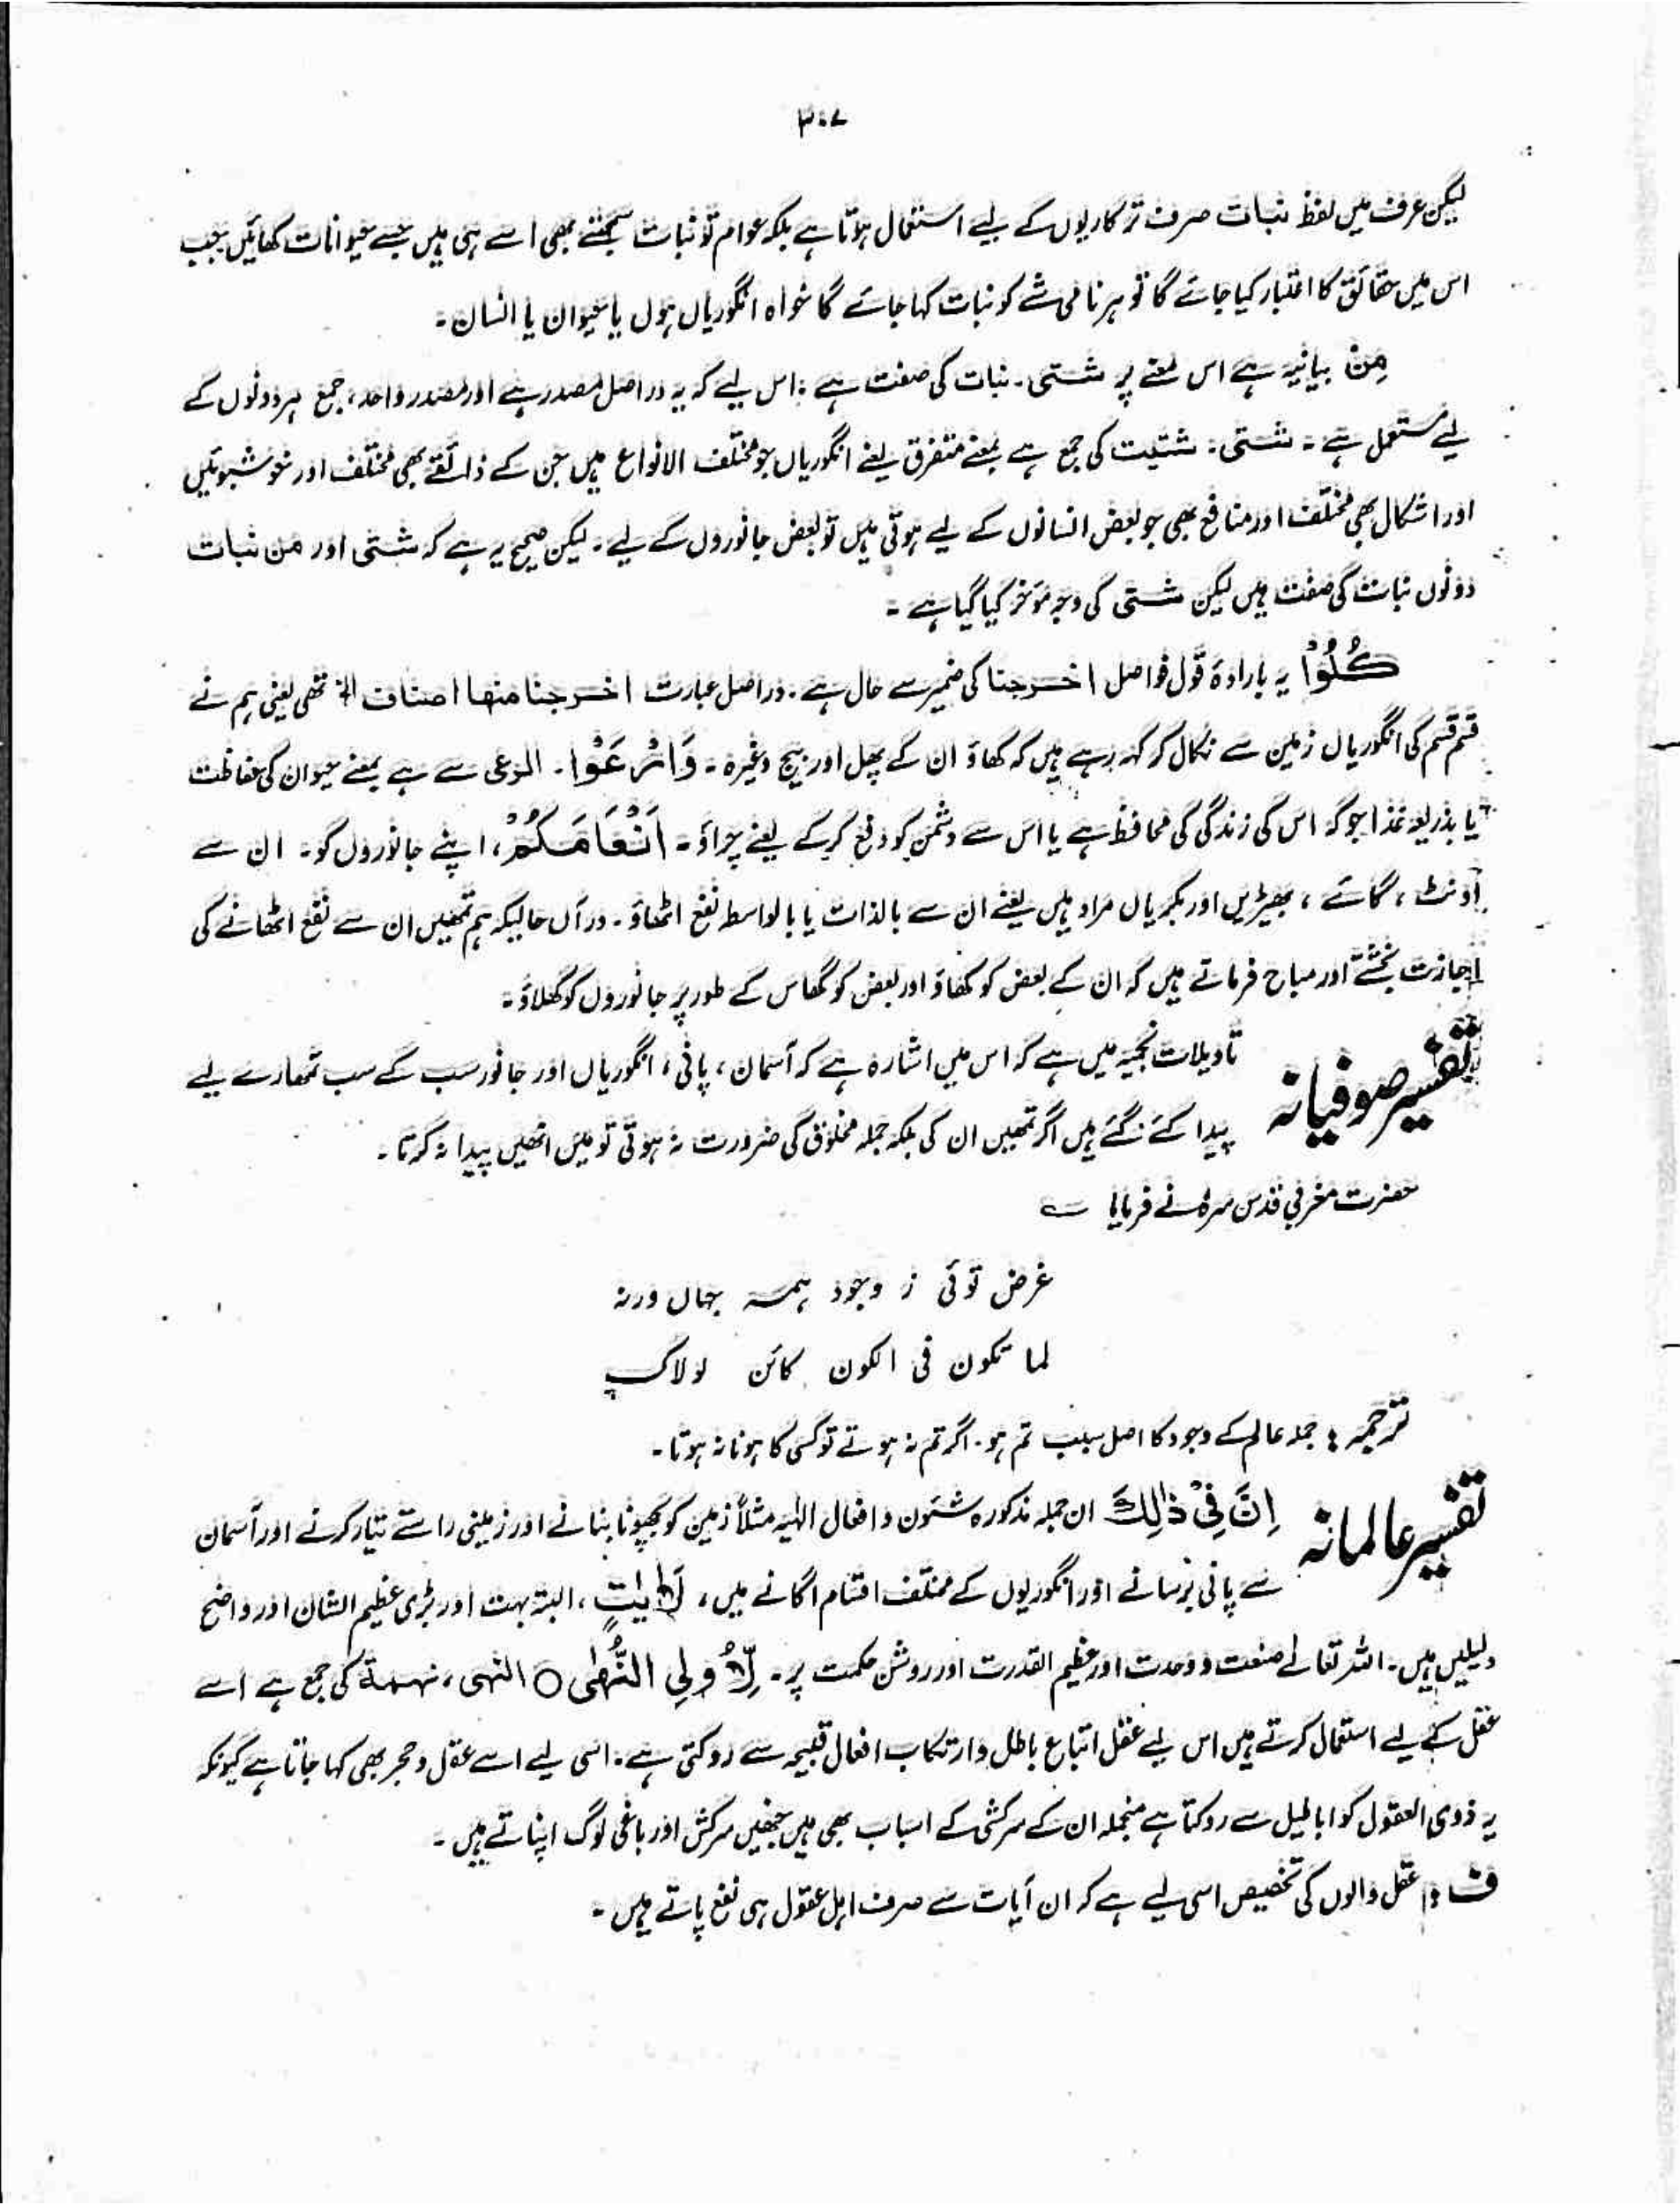 ۳۰۷
لیکن عرف میں لفظ نبات صرف ترکاریوں کے لیے استعمال ہوتا ہے بلکہ عوام تو نبات سمجھتے بھی اسے ہی ہیں جسے حیوانات کھائیں جب
اس میں حقائق کا اعتبار کیا جائے گا تو ہر نامی شے کو نبات کہا جائے گا خواہ انگوریاں ہوں یا حیوان یا انسان۔
مِنْ بیانیہ ہے اس معنے پر شتی۔ نبات کی صفت ہے ؛ اس لیے کہ یہ دراصل مصدر ہے اور مصدر واحد، جمع ہر دونوں کے
لیے مستعمل ہے ۔ شتی : شتیت کی جمع ہے بمعنے متفرق یعنے انگوریاں جو مختلف الانواع ہیں جن کے ذائقے بھی مختلف اور خوشبوئیں
اور اشکال بھی مختلف اور منافع بھی جو بعض انسانوں کے لیے ہوتی ہیں تو بعض جانوروں کے لیے ۔ لیکن صحیح یہ ہے کہ شتی اور من نبات
دونوں نبات کی صفت ہیں لیکن شتی کی وجہ مؤخر کیا گیا ہے ۔
کُلُوْا یہ بارادۂ قول فواصل اخرجنا کی ضمیر سے حال ہے ۔ دراصل عبارت اخرجنا منھا اصناف الخ تھی یعنی ہم نے
قسم قسم کی انگوریاں زمین سے نکال کر کہہ رہے ہیں کہ کھاؤ ان کے پھل اور بیج وغیرہ ۔ وَارْعَوْا ۔ الرعی سے ہے بمعنے حیوان کی حفاظت
یا بذریعہ غذا جو کہ اس کی زندگی کی محافظ ہے یا اس سے دشمن کو دفع کرکے یعنے چراؤ ۔ اَنْعَامَکُمْ ، اپنے جانوروں کو ۔ ان سے
اونٹ ، گائے ، بھیڑیں اور بکریاں مراد ہیں یعنے ان سے بالذات یا بالواسطہ نفع اٹھاؤ ۔ درآں حالیکہ ہم تمھیں ان سے نفع اٹھانے کی
اجازت بخشتے اور مباح فرماتے ہیں کہ ان کے بعض کو کھاؤ اور بعض کو گھاس کے طور پر جانوروں کو کھلاؤ ۔
تفسیر صوفیانہ تاویلات نجمیہ میں ہے کہ اس میں اشارہ ہے کہ آسمان ، پانی ، انگوریاں اور جانور سب کے سب تمھارے لیے
پیدا کئے گئے ہیں اگر تمھیں ان کی بلکہ جملہ مخلوق کی ضرورت نہ ہوتی تو میں انھیں پیدا نہ کرتا ۔
حضرت مغربی قدس سرہ نے فرمایا ؎
غرض توئی ز وجود ہمہ جہاں ورنہ
لما تکون فی الکون کائن لولاک
ترجمہ : جملہ عالم کے وجود کا اصل سبب تم ہو ۔ اگر تم نہ ہوتے تو کسی کا ہونا نہ ہوتا ۔
تفسیر عالمانہ اِنَّ فِیْ ذٰلِكَ ان جملہ مذکورہ شئون و افعال الٰہیہ مثلاً زمین کو بچھونا بنانے اور زمینی راستے تیار کرنے اور آسمان
سے پانی برسانے اور انگوریوں کے مختلف اقسام اگانے میں ، لَاٰیٰتٍ ، البتہ بہت اور بڑی عظیم الشان اور واضح
دلیلیں ہیں ۔ اللہ تعالےٰ صنعت و وحدت اور عظیم القدرت اور روشن حکمت پر ۔ لِّاُولِی النُّھٰی ○ النھی ، نھیۃ کی جمع ہے اسے
عقل کے لیے استعمال کرتے ہیں اس لیے عقل اتباع باطل وارتکاب افعال قبیحہ سے روکتی ہے ۔ اسی لیے اسے عقل و حجر بھی کہا جاتا ہے کیونکہ
یہ ذوی العقول کو اباطیل سے روکتا ہے منجملہ ان کے سرکشی کے اسباب بھی ہیں جنھیں سرکش اور باغی لوگ اپناتے ہیں ۔
ف : عقل والوں کی تخصیص اسی لیے ہے کہ ان آیات سے صرف اہل عقول ہی نفع پاتے ہیں ۔